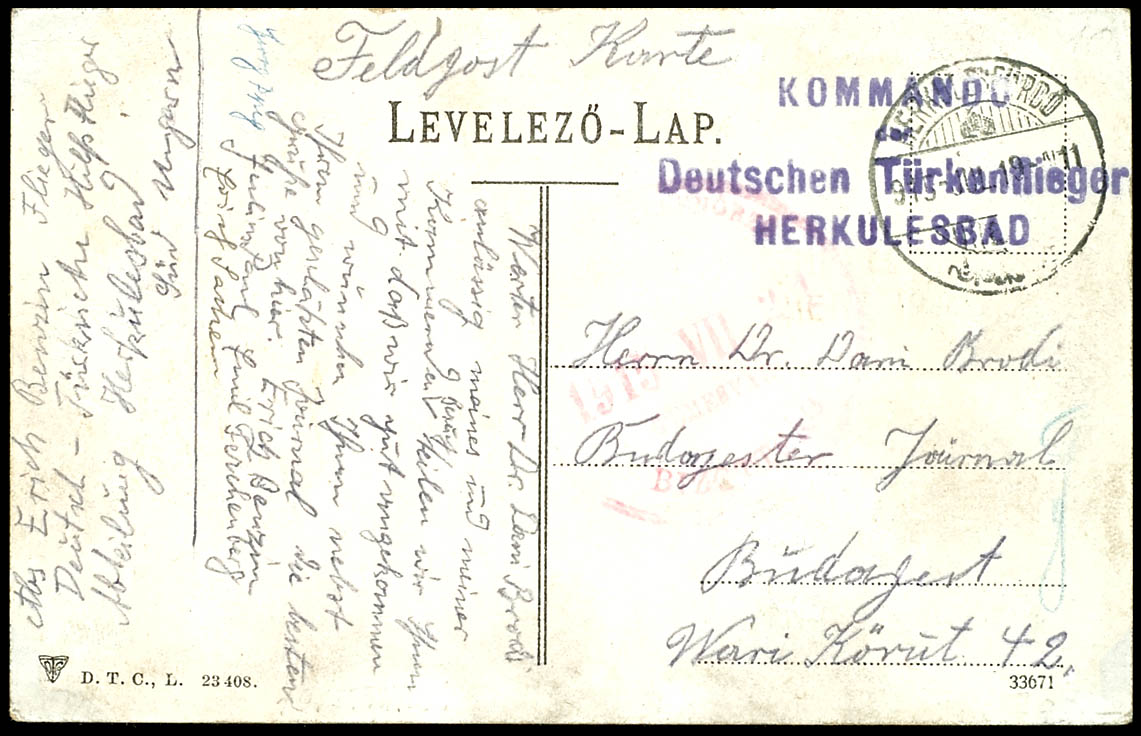 Feldpost Karte
LEVELEZŐ-LAP.
KOMMANDO
der
Deutschen Türkenflieger
HERKULESBAD
HERKULESFÜRDŐ
915 JUL 19 11
1915 VII
BUDAPEST
Herrn Dr. Dani Brodi
Budapester Journal
Budapest
Wari Körut 42.
33671
Werter Herr Dr. Dani Brodi
anlässig meines und meiner
Kammeraden teilen wir Ihnen
mit daß wir gut angekommen
und wünschen Ihnen nebst
Ihrem geschätzten Journal die besten
Grüße von hier. Erich Benzin
Paul Emil Ferchenberg
Abs Erich Benzin Flieger
Deutsch - Türkische Hilfsflüger
Abteilung Herkulesbad
Süd Ungarn
D. T. C., L. 23408.